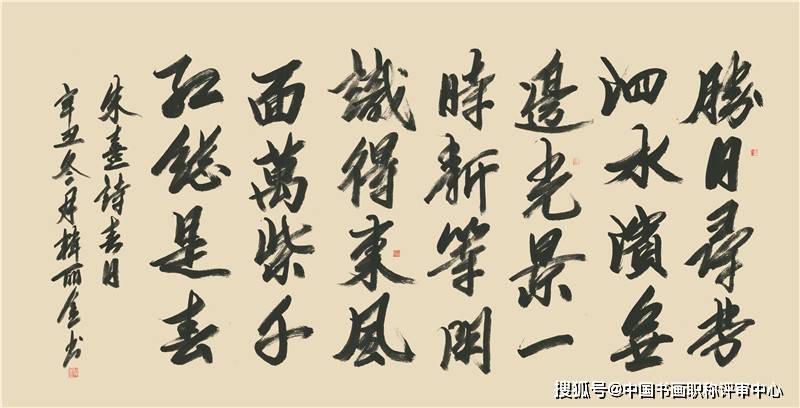 勝日尋芳
泗水濱無
邊光景一
時新等閑
識得東風
面萬紫千
紅總是春
朱熹詩春日
辛丑冬月丽金书
搜狐号@中国书画职称评审中心